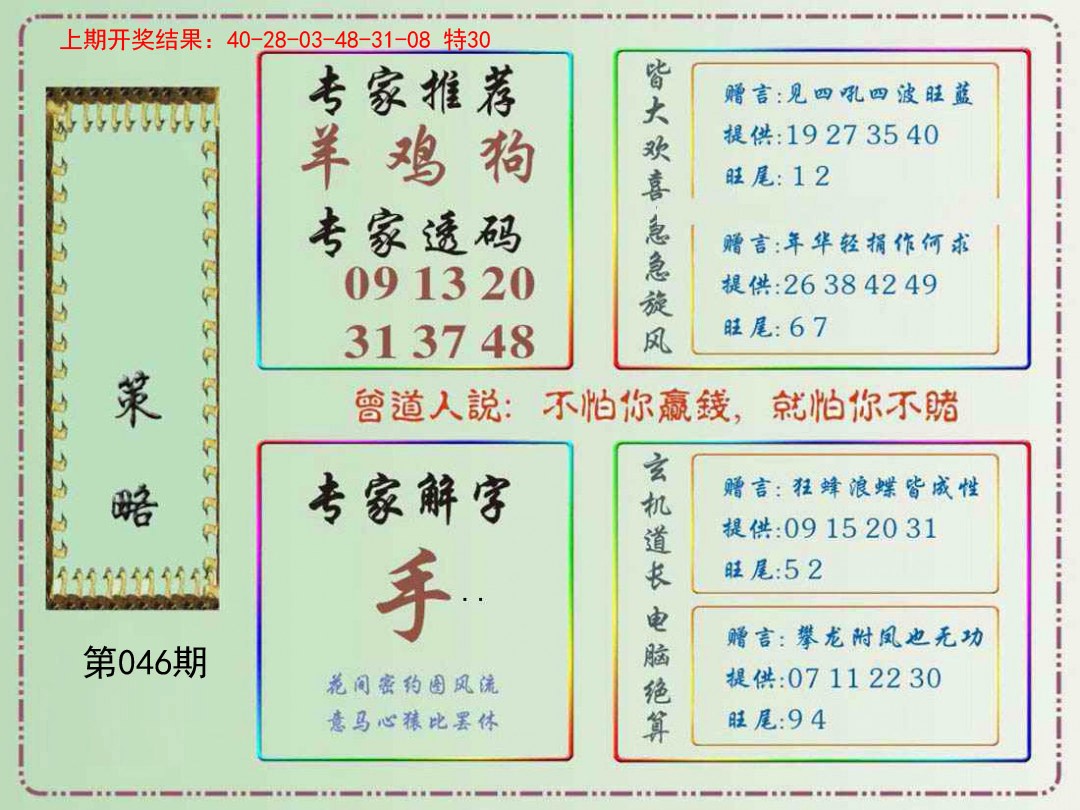 上期开奖结果：40-28-03-48-31-08 特30
策略
第046期
专家推荐
羊 鸡 狗
专家透码
09 13 20
31 37 48
皆大欢喜
赠言:见四吼四波旺蓝
提供:19 27 35 40
旺尾:1 2
急急旋风
赠言:年华轻捐作何求
提供:26 38 42 49
旺尾:6 7
曾道人説：不怕你贏錢，就怕你不賭
专家解字
手..
花间密约图风流
意马心猿比罢休
玄机道长
赠言:狂蜂浪蝶皆成性
提供:09 15 20 31
旺尾:5 2
电脑绝算
赠言:攀龙附凤也无功
提供:07 11 22 30
旺尾:9 4